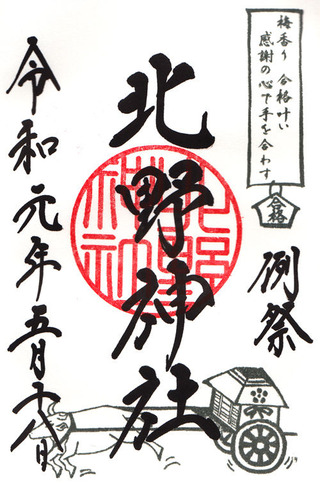 梅香り 合格叶い
感謝の心で手を合わす
合格
例祭
北野神社
北野神社
令和元年五月十八日